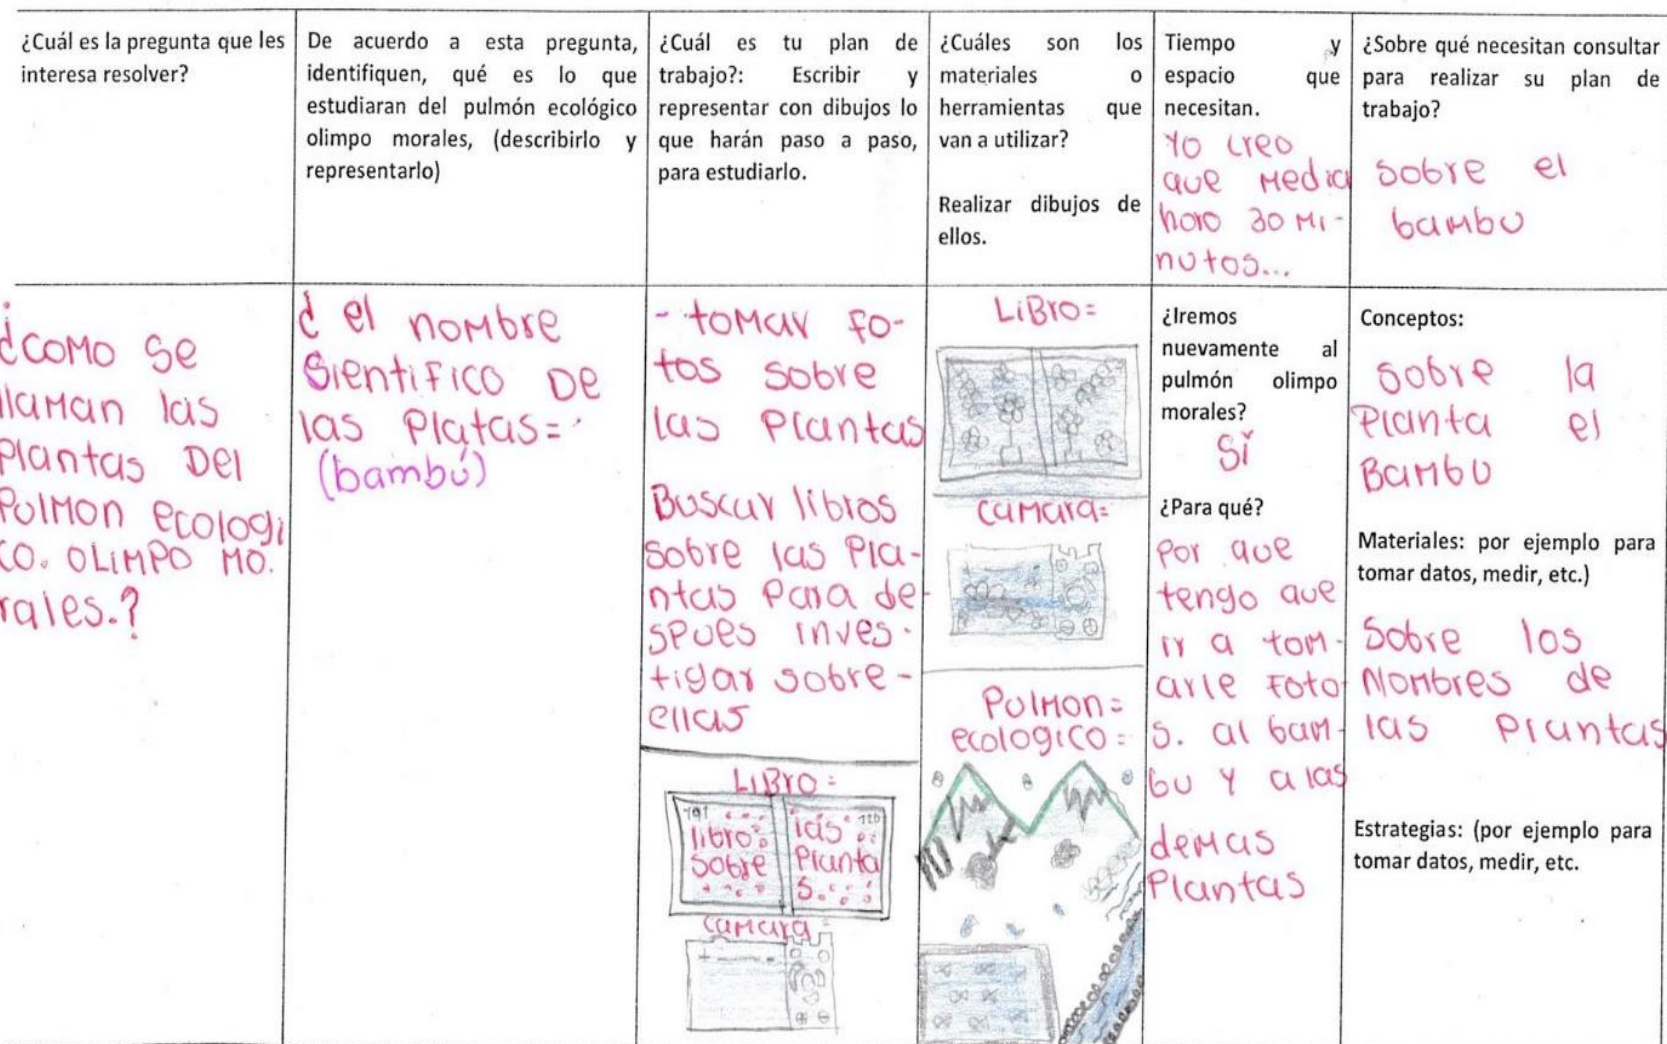 ¿Cuál es la pregunta que les
interesa resolver?
De acuerdo a esta pregunta,
identifiquen, qué es lo que
estudiaran del pulmón ecológico
olimpo morales, (describirlo y
representarlo)
¿Cuál es tu plan de
trabajo?: Escribir y
representar con dibujos lo
que harán paso a paso,
para estudiarlo.
¿Cuáles son los
materiales o
herramientas que
van a utilizar?
Realizar dibujos de
ellos.
Tiempo y
espacio que
necesitan.
Yo creo
que media
horo 30 mi-
nutos...
¿Sobre qué necesitan consultar
para realizar su plan de
trabajo?
Sobre el
bambu
¿como se
llaman las
Plantas Del
Pulmon ecologi
co. OLIMPO MO.
rales.?
¿ el nombre
Sientifico De
las Platas=
(bambú)
- tomar fo-
tos sobre
las Plantas
Buscar libros
sobre las Pla-
ntas Para de-
spues inves-
tigar sobre-
ellas
LiBro=
191 126
libro las
sobre Planta
s.
camara=
LiBro=
camara=
Pulmon=
ecologico=
¿Iremos
nuevamente al
pulmón olimpo
morales?
Sí
¿Para qué?
Por que
tengo que
ir a tom-
arle Foto
s. al bam-
bu Y a las
demas
Plantas
Conceptos:
Sobre la
Planta el
Bambu
Materiales: por ejemplo para
tomar datos, medir, etc.)
Sobre los
Nombres de
las Plantas
Estrategias: (por ejemplo para
tomar datos, medir, etc.